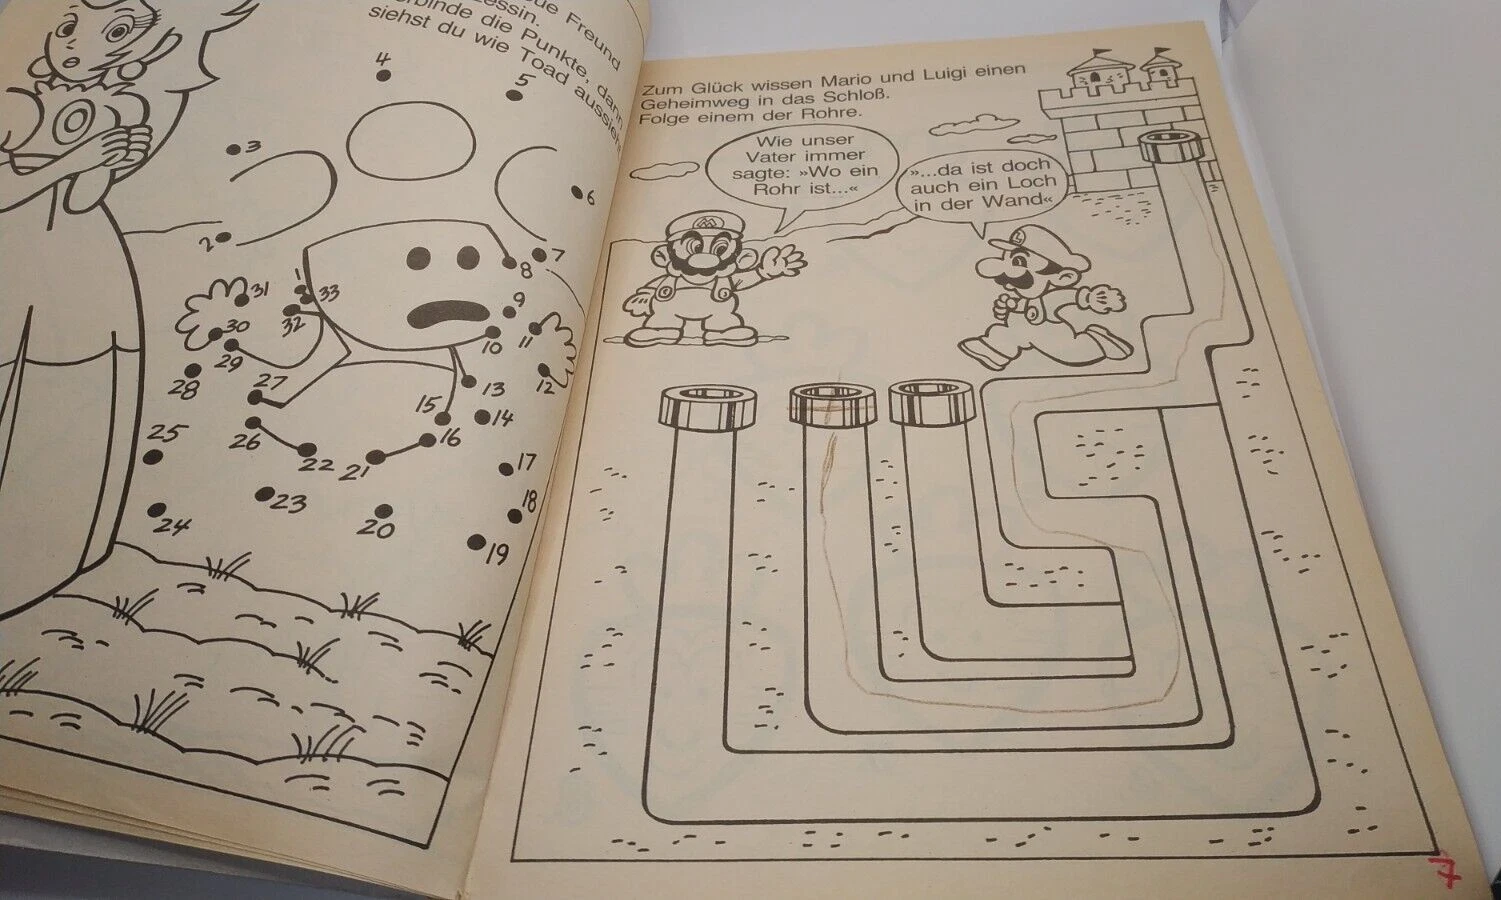 ue Freund
essin.
rbinde die Punkte, dann
siehst du wie Toad aussieht
4
5
3
6
2
7
8
1
31
33
9
30
32
10
11
29
28
27
13
12
15
14
25
26
16
22
21
17
23
18
24
20
19
Zum Glück wissen Mario und Luigi einen
Geheimweg in das Schloß.
Folge einem der Rohre.
Wie unser
Vater immer
sagte: »Wo ein
Rohr ist...«
»...da ist doch
auch ein Loch
in der Wand«
M
L
7